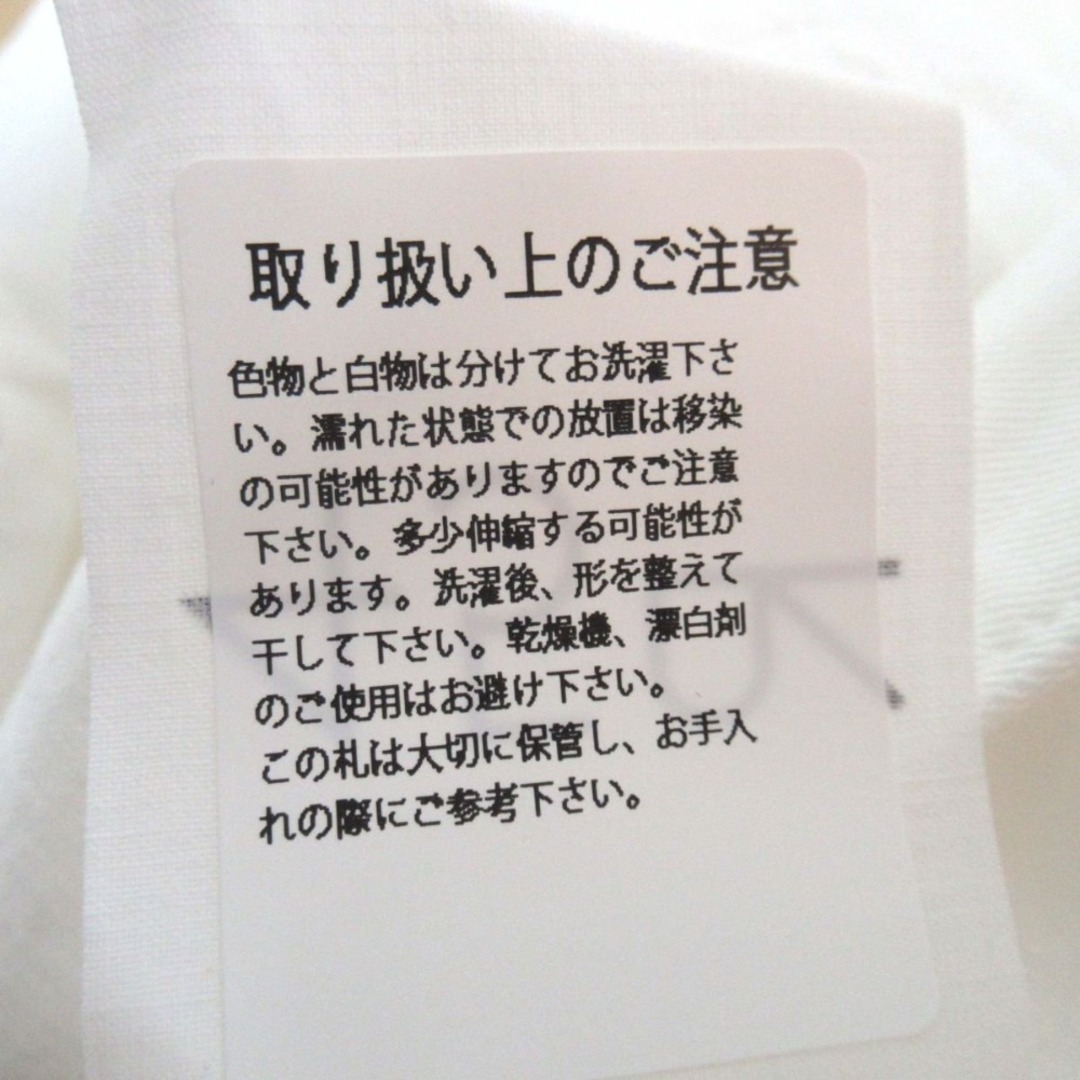 取り扱い上のご注意
色物と白物は分けてお洗濯下さ
い。濡れた状態での放置は移染
の可能性がありますのでご注意
下さい。多少伸縮する可能性が
あります。洗濯後、形を整えて
干して下さい。乾燥機、漂白剤
のご使用はお避け下さい。
この札は大切に保管し、お手入
れの際にご参考下さい。